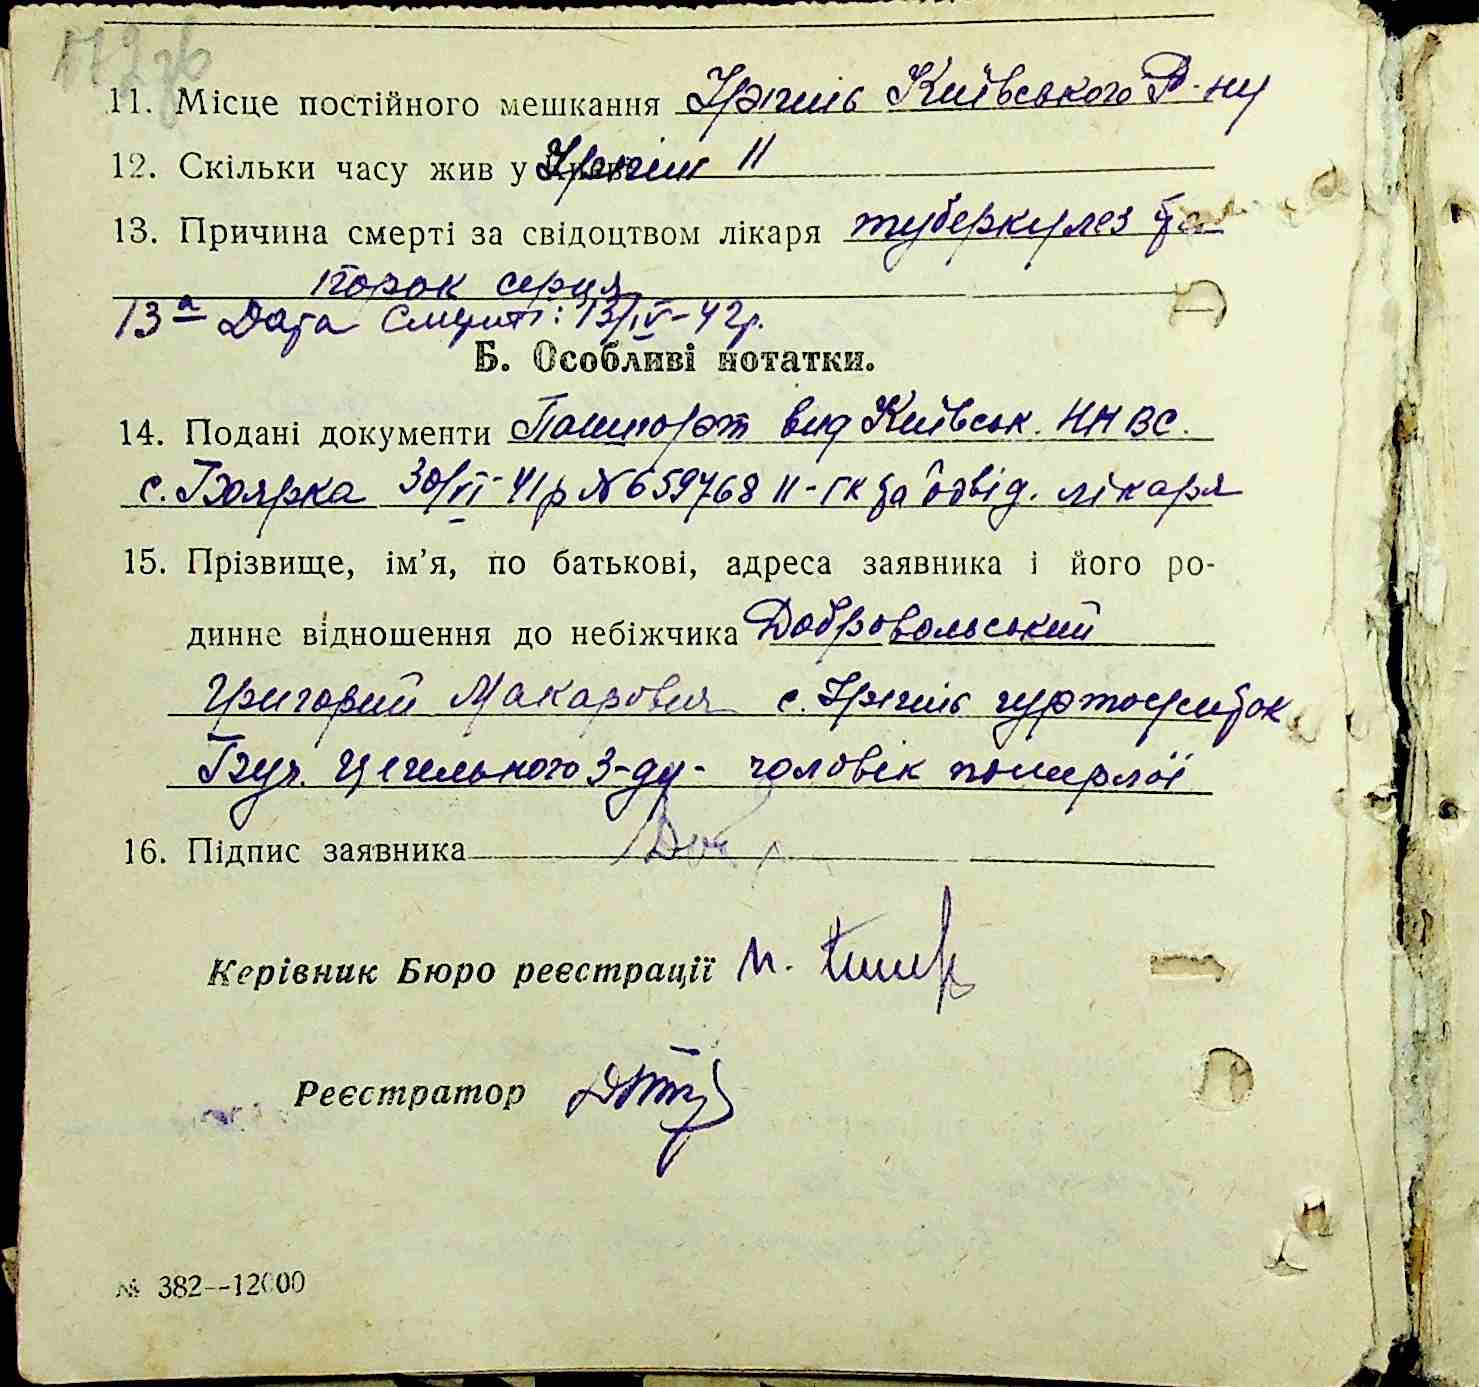 11. Місце постійного мешкання Ірпінь Київського Р-ну
12. Скільки часу жив у Ірпіні 11
13. Причина смерті за свідоцтвом лікаря туберкулез та
порок серця
13а Дата смерті: 13/IV-42р.
Б. Особливі нотатки.
14. Подані документи Пашпорт вид Київськ. НКВС.
с. Боярка 30/VI-41р №659768 II-ГК та посвід. лікаря
15. Прізвище, ім’я, по батькові, адреса заявника і його ро-
динне відношення до небіжчика Добровольський
Григорий Макарович с. Ірпінь гуртожиток
Буч. Цегельного З-ду - чоловік померлої
16. Підпис заявника
Керівник Бюро реєстрації
Реєстратор
№ 382--12000